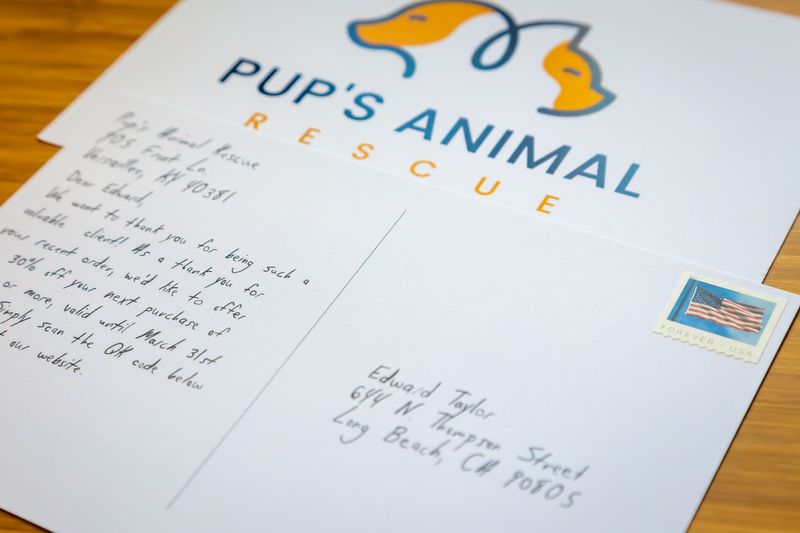 PUP'S ANIMAL
RESCUE
Pup's Animal Rescue
105 Frat Ln.
Versailles, KY 40381
Dear Edward,
We want to thank you for being such a
valuable client! As a thank you for
your recent order, we'd like to offer
30% off your next purchase of
or more, valid until March 31st
Simply scan the QR code below
our website.
FOREVER / USA
Edward Taylor
644 N. Thompson Street
Long Beach, CA 90805